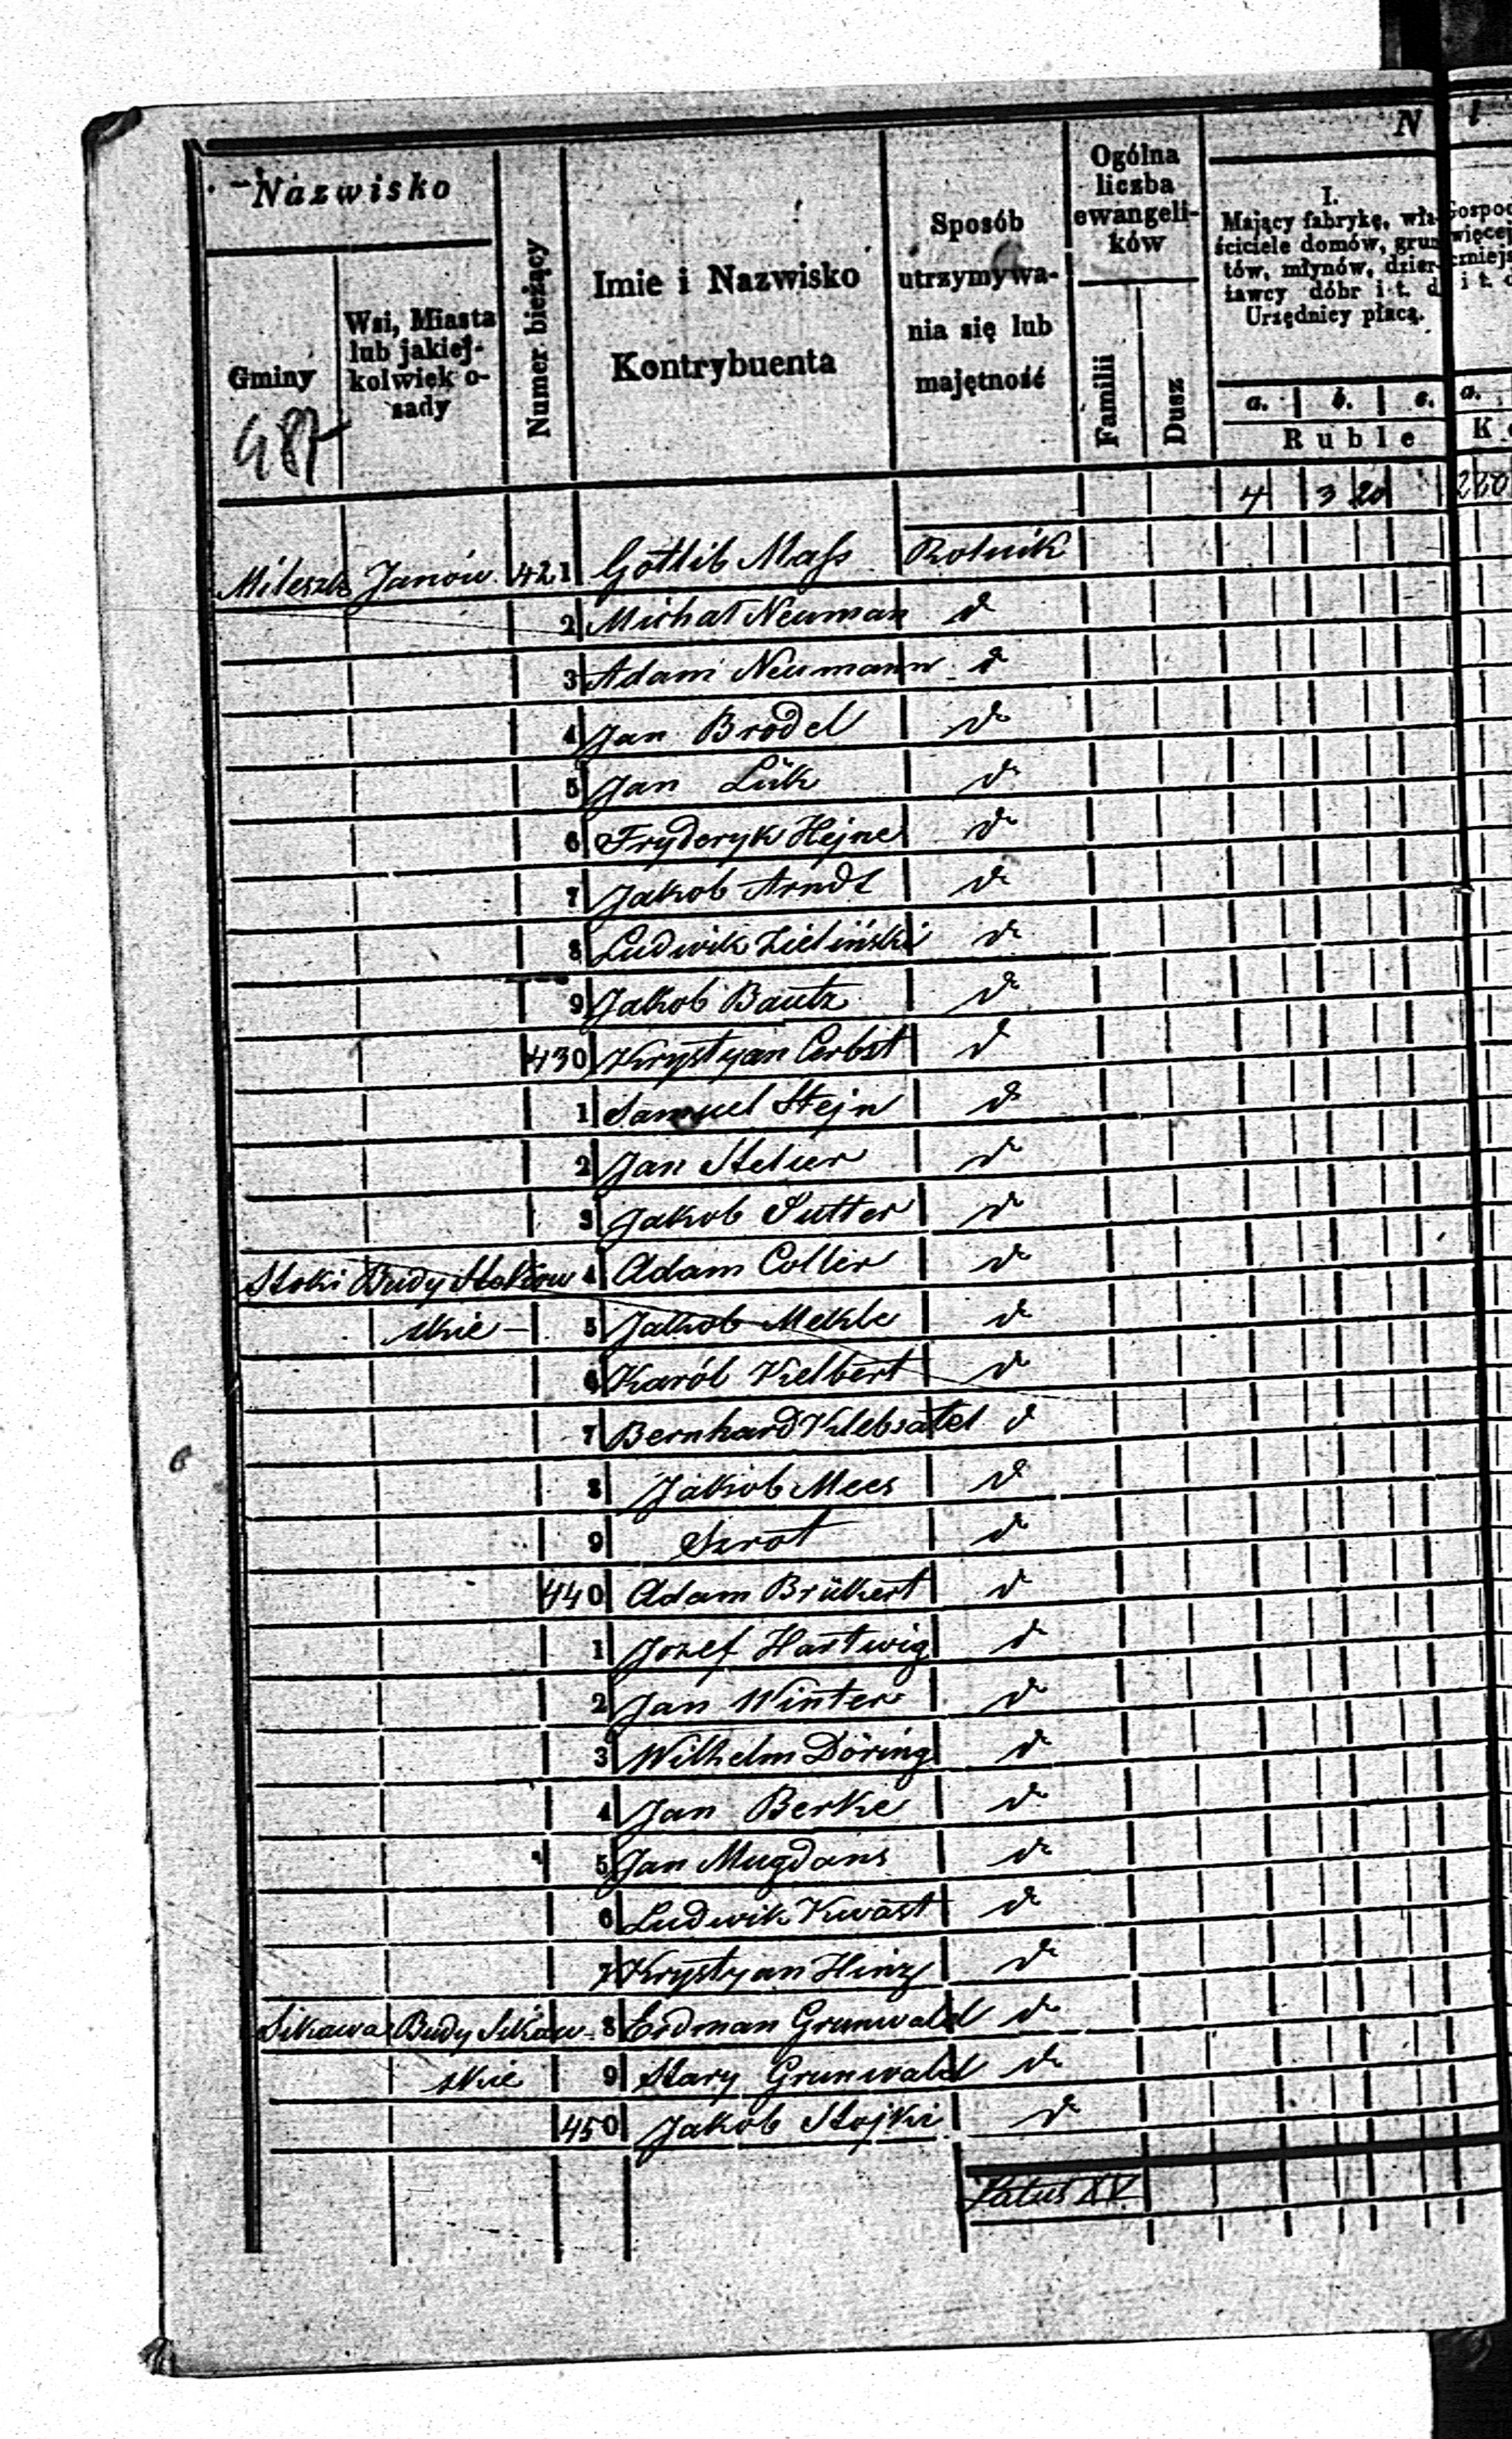 Nazwisko
Gminy
Wsi, Miasta lub jakiej-kolwiek o-sady
Numer bieżący
Imie i Nazwisko Kontrybuenta
Sposób utrzymywa-nia się lub majętność
Ogólna liczba ewangeli-ków
Familii
Dusz
N
I.
Mający fabrykę, wła-
ściciele domów, grun
tów, młynów, dzier-
żawcy dóbr i t. d
Urzędnicy płacą.
a. b. c. a.
Ruble K
487
4 3 20 220
Mileszki Janów 421 Gottlib Mass Rolnik
2 Michał Neuman d
3 Adam Neumann d
4 Jan Brodel d
5 Jan Lük d
6 Fryderyk Hejne d
7 Jakob Arndt d
8 Ludwik Zieliński d
9 Jakob Bautz d
430 Krystyan Cerbst d
1 Samuel Stejn d
2 Jan Stelier d
3 Jakob Sutter d
Stoki Budy Stokow 4 Adam Coller d
skie 5 Jakob Mekle d
6 Karól Kelbert d
7 Bernhard Klebsatel d
8 Jakob Mees d
9 Szrot d
440 Adam Brükert d
1 Jozef Hartwig d
2 Jan Winter d
3 Wilhelm Döring d
4 Jan Berke d
5 Jan Mugdans d
6 Ludwik Kwast d
7 Krystyan Hinz d
Sikawa Budy Sikaw- 8 Erdman Grunwald d
skie 9 Stary Grunwald d
450 Jakob Stojki d
Latus XV.